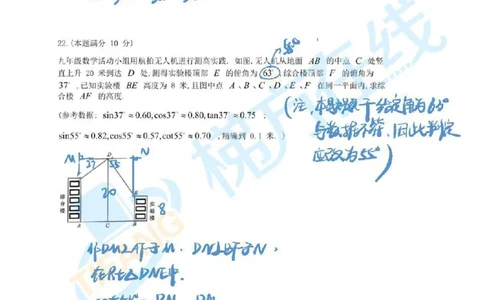 22.(本题满分 10 分)
55°
九年级数学活动小组用航拍无人机进行测高实践. 如图,无人机从地面 AB 的中点 C 处竖
直上升 20 米到达 D 处,测得实验楼顶部 E 的俯角为 63°,综合楼顶部 F 的俯角为
37°,已知实验楼 BE 高度为 8 米,且图中点 A、B、C、D、E、F 在同一平面内,求综
合楼 AF 的高度.
(参考数据: sin37°≈0.60,cos37°≈0.80,tan37°≈0.75 ,
sin55°≈0.82,cos55°≈0.57,cot55°≈0.70 ,精确到 0.1 米.)
(注:本题题干给定角为63°
与数据不符,因此判定
应改为55°)
M D N
37 55
20
E
综合楼
实验楼
8
A C B
作DM⊥AF于M, DN⊥BE于N,
在Rt△DNE中,